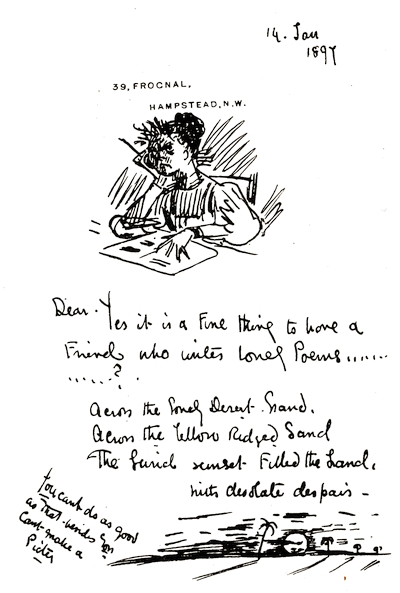 14. Jan
1897
39, FROGNAL,
HAMPSTEAD, N.W.
Dear. Yes it is a Fine thing to have a
Friend who writes lovely Poems......
......?
Across the Lonely Desert Strand.
Across the Yellow Ridged Sand
The Lurid sunset Filled the Land.
With desolate despair –
You cant do as good
as That. besides you
Cant make a
Picter